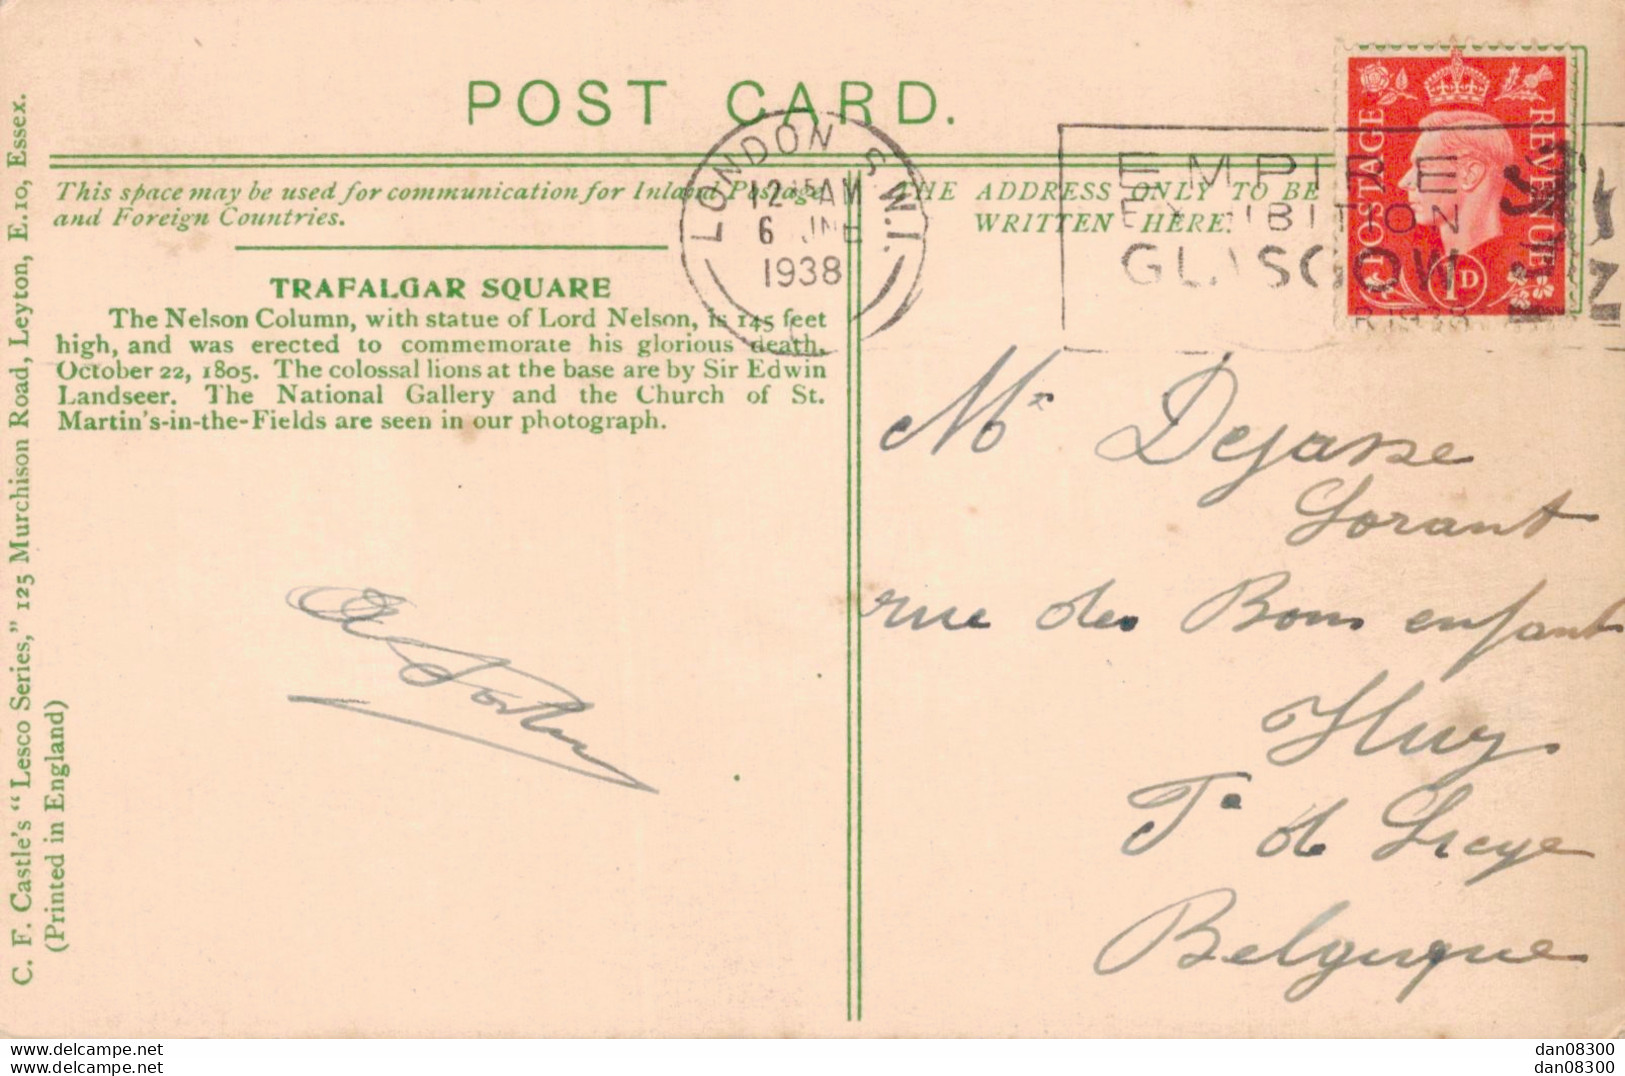 POST CARD.
This space may be used for communication for Inland Postage,
and Foreign Countries.
THE ADDRESS ONLY TO BE
WRITTEN HERE.
TRAFALGAR SQUARE
The Nelson Column, with statue of Lord Nelson, is 145 feet
high, and was erected to commemorate his glorious death,
October 22, 1805. The colossal lions at the base are by Sir Edwin
Landseer. The National Gallery and the Church of St.
Martin's-in-the-Fields are seen in our photograph.
C. F. Castle's "Lesco Series," 125 Murchison Road, Leyton, E.10, Essex.
(Printed in England)
LONDON S.W.1.
12 15 AM
6 JNE
1938
EMPIRE
EXHIBITION
GLASGOW
POSTAGE
REVENUE
1D
Mr Dejasse
Lorant
rue des Bons enfant
Huy
de
Belgique
www.delcampe.net
www.delcampe.net
dan08300
dan08300